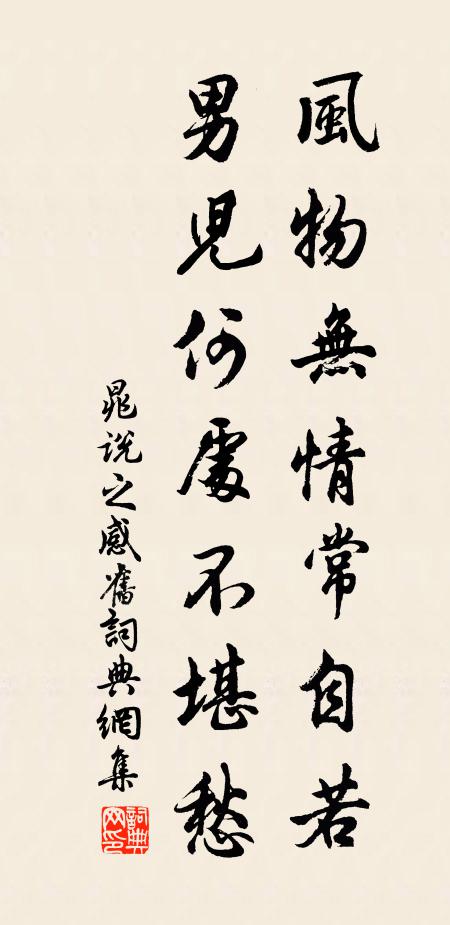 風物無情常自若
男児何處不堪愁
晁說之感舊詞典網集
詞典網印